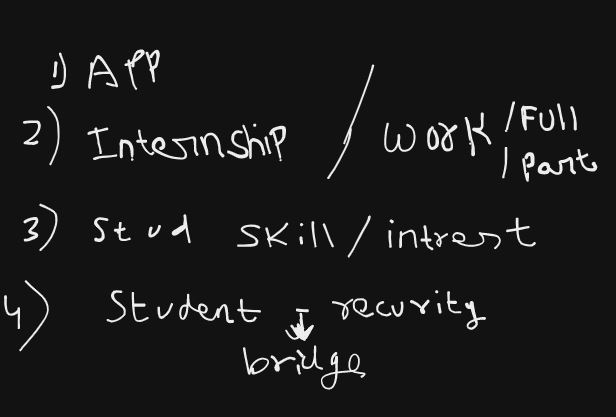 1) APP
2) Internship / work /Full
/part
3) Stud skill / intrest
4) Student - recurity
bridge